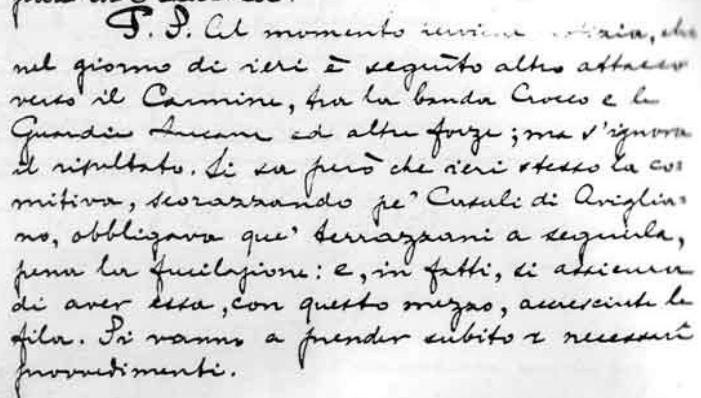 P. S. Al momento notizia, che
nel giorno di ieri è seguito altro attacco
verso il Carmine, tra la banda Crocco e le
Guardie Lucane ed altre forze; ma s'ignora
il risultato. Si sa però che ieri stesso la co-
mitiva, scorazzando pe' Casali di Aviglia-
no, obbligava que' terrazzani a seguirla,
pena la fucilazione: e, in fatti, si assicura
di aver essa, con questo mezzo, accresciute le
fila. Si vanno a prender subito i necessarî
provvedimenti.